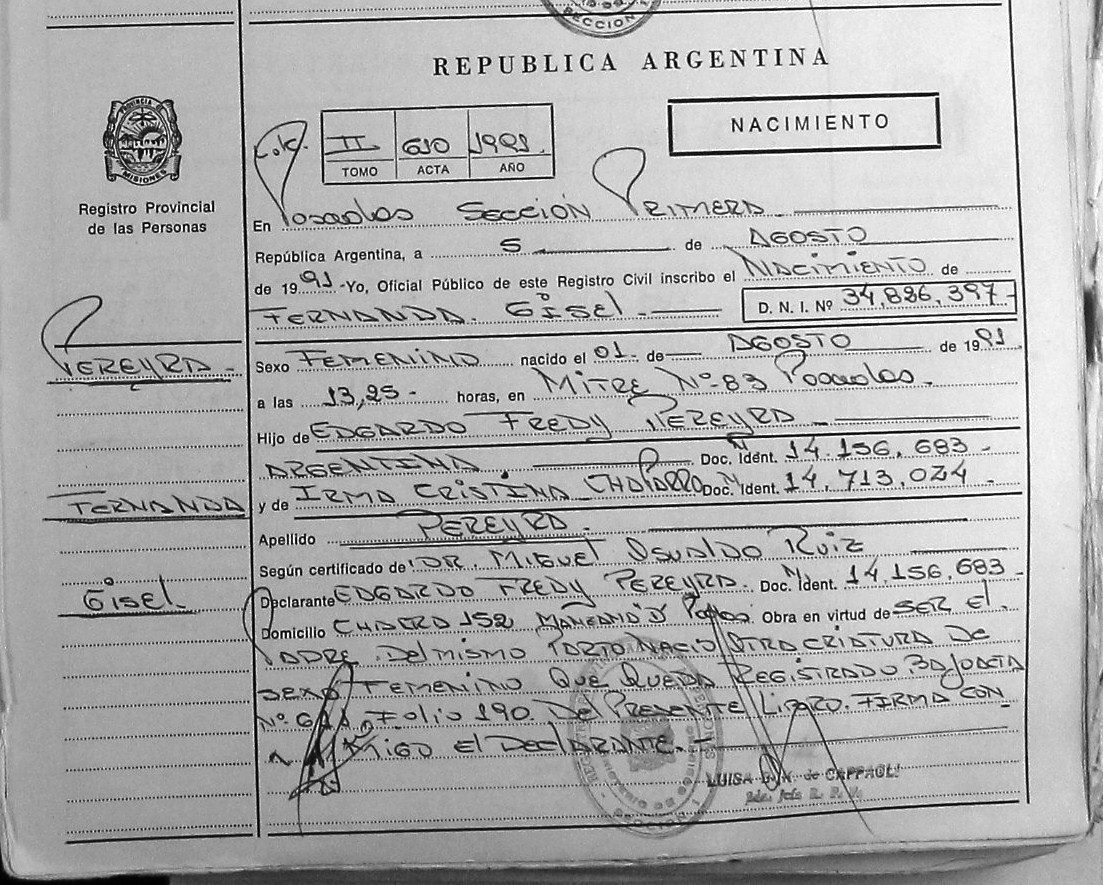 SECCION
REPUBLICA ARGENTINA
PROVINCIA DE
MISIONES
Registro Provincial
de las Personas
II 610 1991.
TOMO ACTA AÑO
NACIMIENTO
En Posadas SECCION PRIMERA
República Argentina, a 5 de AGOSTO
de 1991 -Yo, Oficial Público de este Registro Civil inscribo el NACIMIENTO de
FERNANDA GISEL.- D. N. I. Nº 34,886,397-
PEREYRA -
Sexo FEMENINO nacido el 01 de AGOSTO de 1991
a las 13,25- horas, en MITRE Nº 83 Posadas -
Hijo de EDGARDO FREDY PEREYRA -
ARGENTINA. Doc. Ident. 14.156,683 -
FERNANDA
y de IRMA CRISTINA CHAPARRO Doc. Ident. 14,713,024 -
Apellido PEREYRA -
Según certificado de DR. MIGUEL OSVALDO RUIZ
GISEL.
Declarante EDGARDO FREDY PEREYRA. Doc. Ident. 14,156,683 -
Domicilio 152 Obra en virtud de SER EL
PADRE. DEL MISMO PARTO NACIO OTRA CRIATURA DE
SEXO FEMENINO QUE QUEDA REGISTRADO BAJO ACTA
Nº FOLIO 190 DEL PRESENTE LIBRO. FIRMA CON
MIGO EL DECLARANTE. -
LUISA de